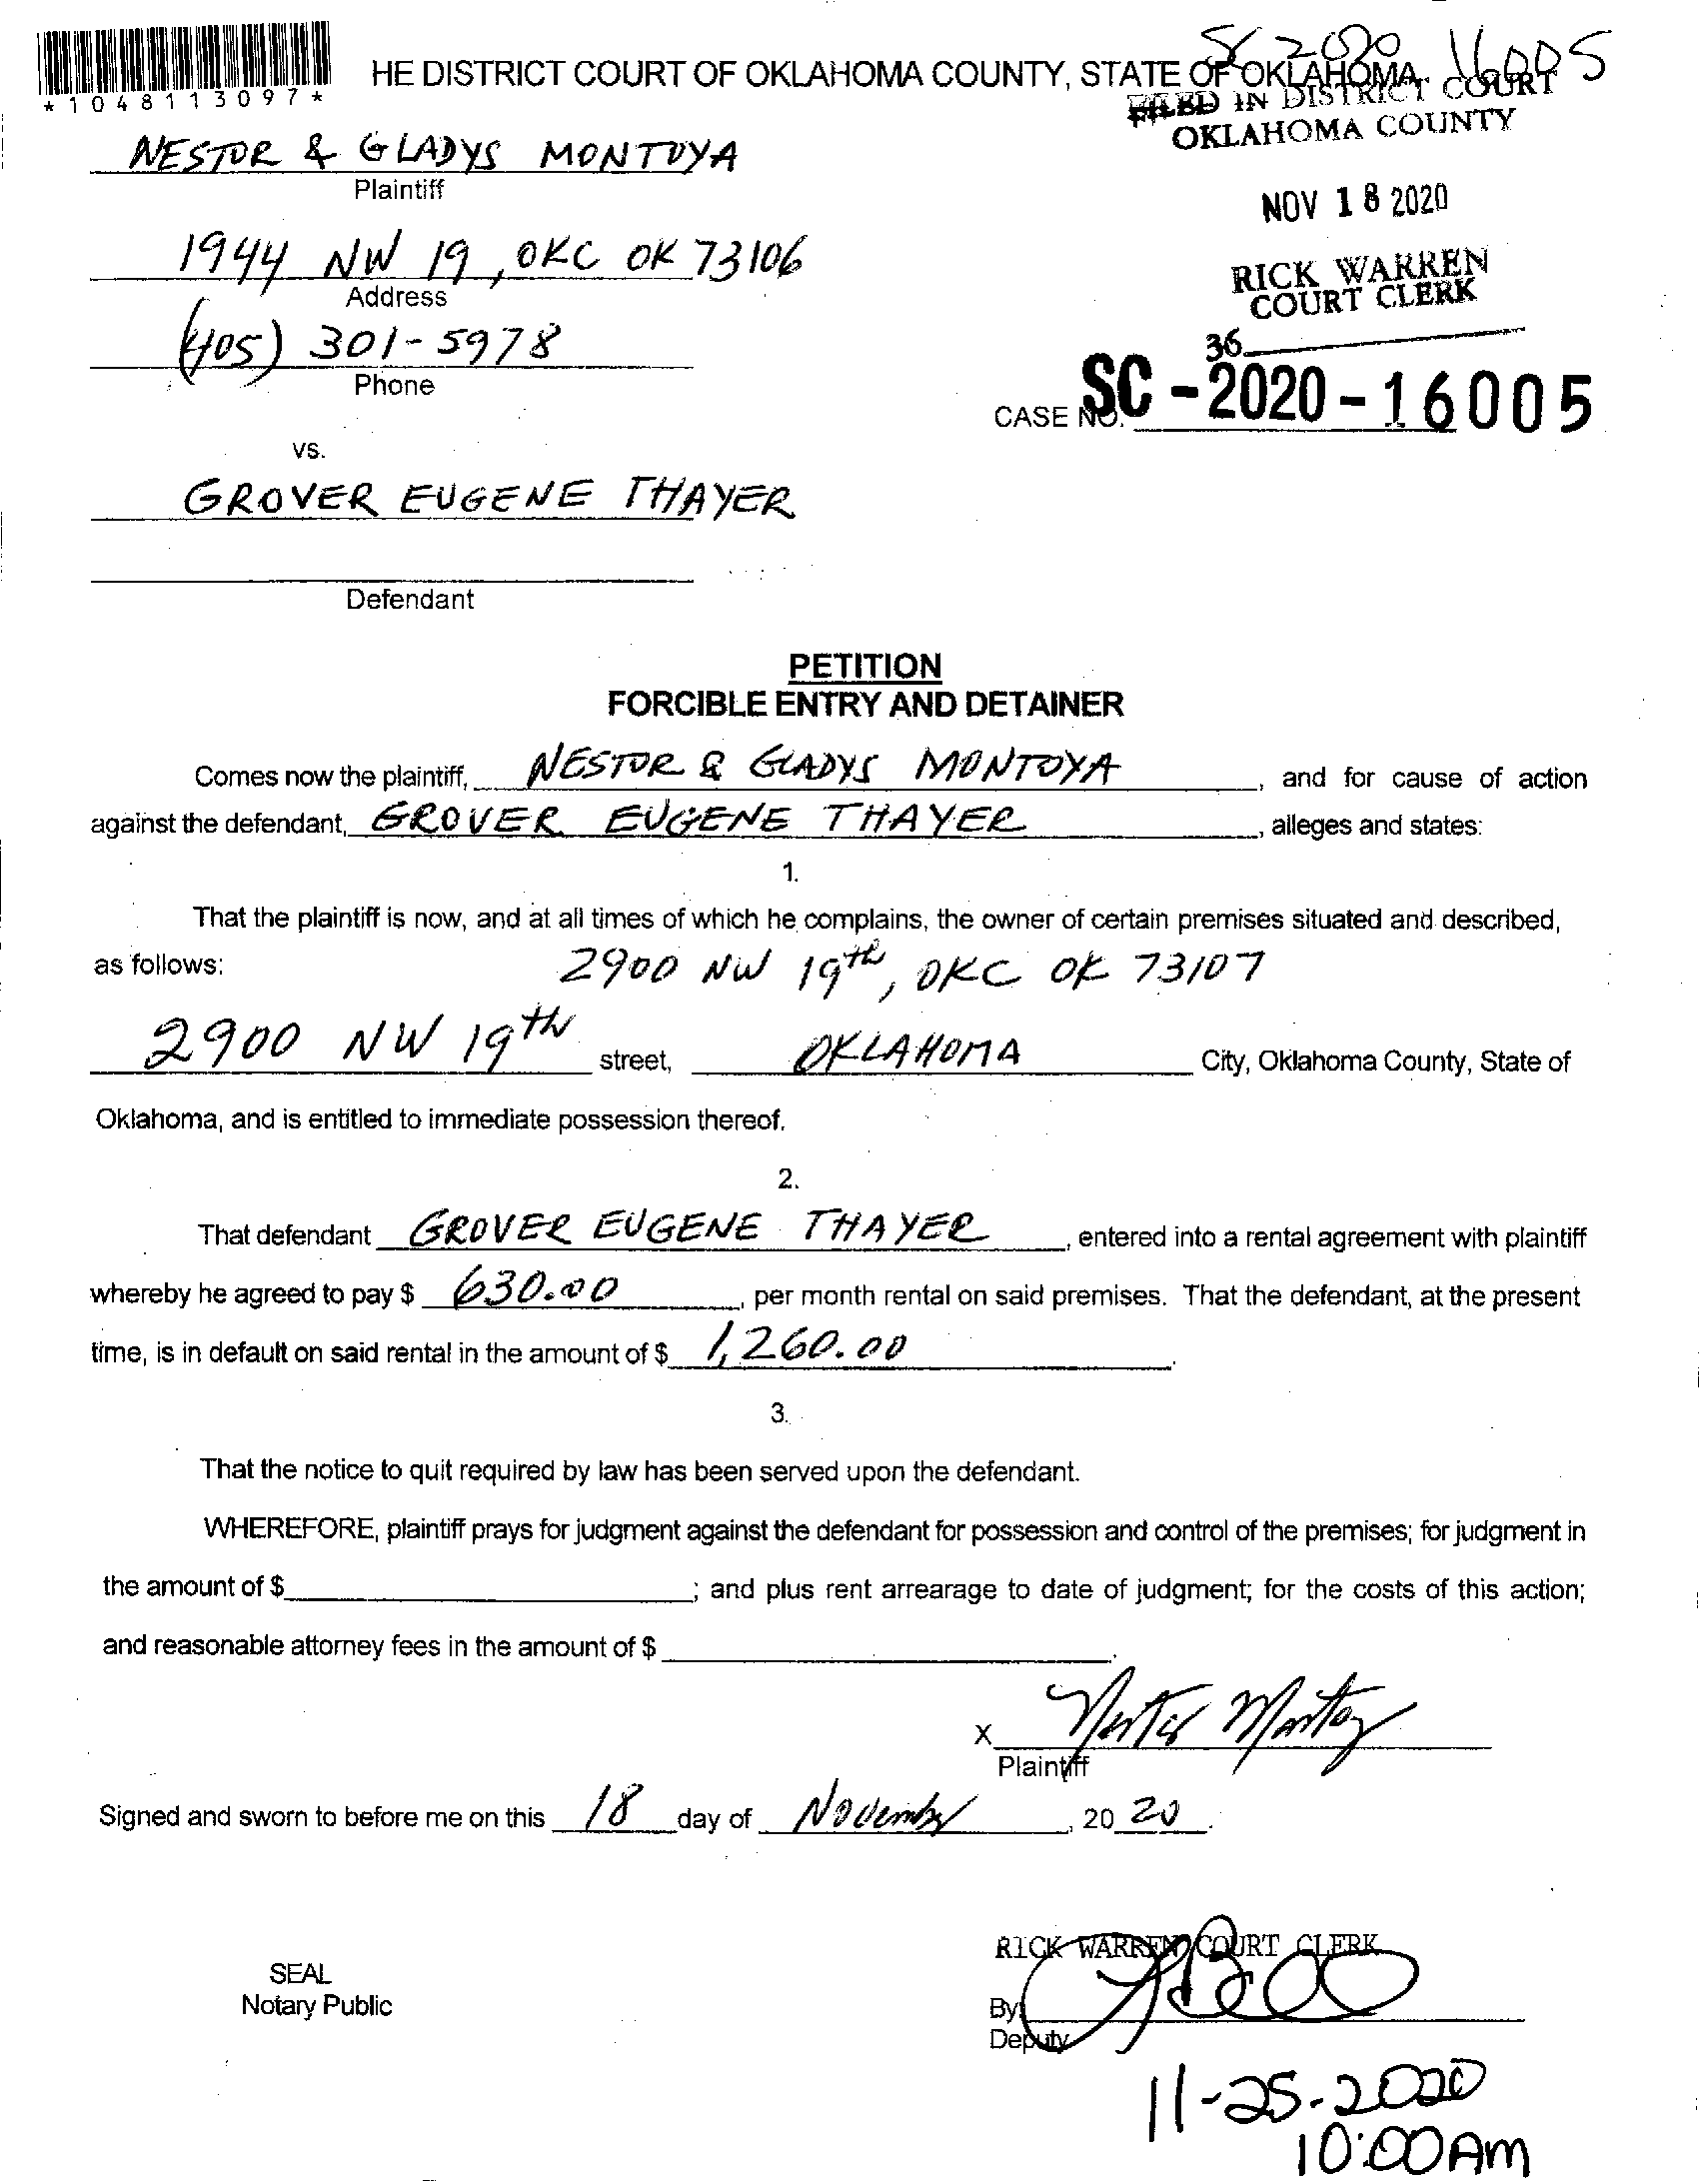 SC 2020 16005
HE DISTRICT COURT OF OKLAHOMA COUNTY, STATE OF OKLAHOMA
*1048113097*
FILED IN DISTRICT COURT
OKLAHOMA COUNTY
NESTOR & GLADYS MONTOYA
Plaintiff
NOV 18 2020
1944 NW 19, OKC OK 73106
Address
RICK WARREN
COURT CLERK
(405) 301-5978
Phone
36
CASE NO. SC-2020-16005
vs.
GROVER EUGENE THAYER
Defendant
PETITION
FORCIBLE ENTRY AND DETAINER
Comes now the plaintiff, NESTOR & GLADYS MONTOYA, and for cause of action
against the defendant, GROVER EUGENE THAYER, alleges and states:
1.
That the plaintiff is now, and at all times of which he complains, the owner of certain premises situated and described,
as follows: 2900 NW 19th, OKC OK 73107
2900 NW 19th street, OKLAHOMA City, Oklahoma County, State of
Oklahoma, and is entitled to immediate possession thereof.
2.
That defendant GROVER EUGENE THAYER, entered into a rental agreement with plaintiff
whereby he agreed to pay $ 630.00, per month rental on said premises. That the defendant, at the present
time, is in default on said rental in the amount of $ 1,260.00.
3.
That the notice to quit required by law has been served upon the defendant.
WHEREFORE, plaintiff prays for judgment against the defendant for possession and control of the premises; for judgment in
the amount of $ ; and plus rent arrearage to date of judgment; for the costs of this action;
and reasonable attorney fees in the amount of $ .
X Nestor Montoy
Plaintiff
Signed and sworn to before me on this 18 day of November, 20 20.
RICK WARREN COURT CLERK
SEAL
Notary Public
By
Deputy
11-25-2020
10:00AM